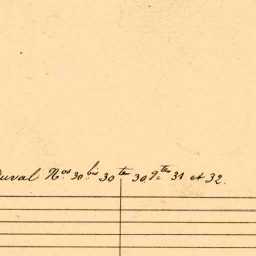 uval Nos 30 bis 30 ter 30 qter 31 et 32.